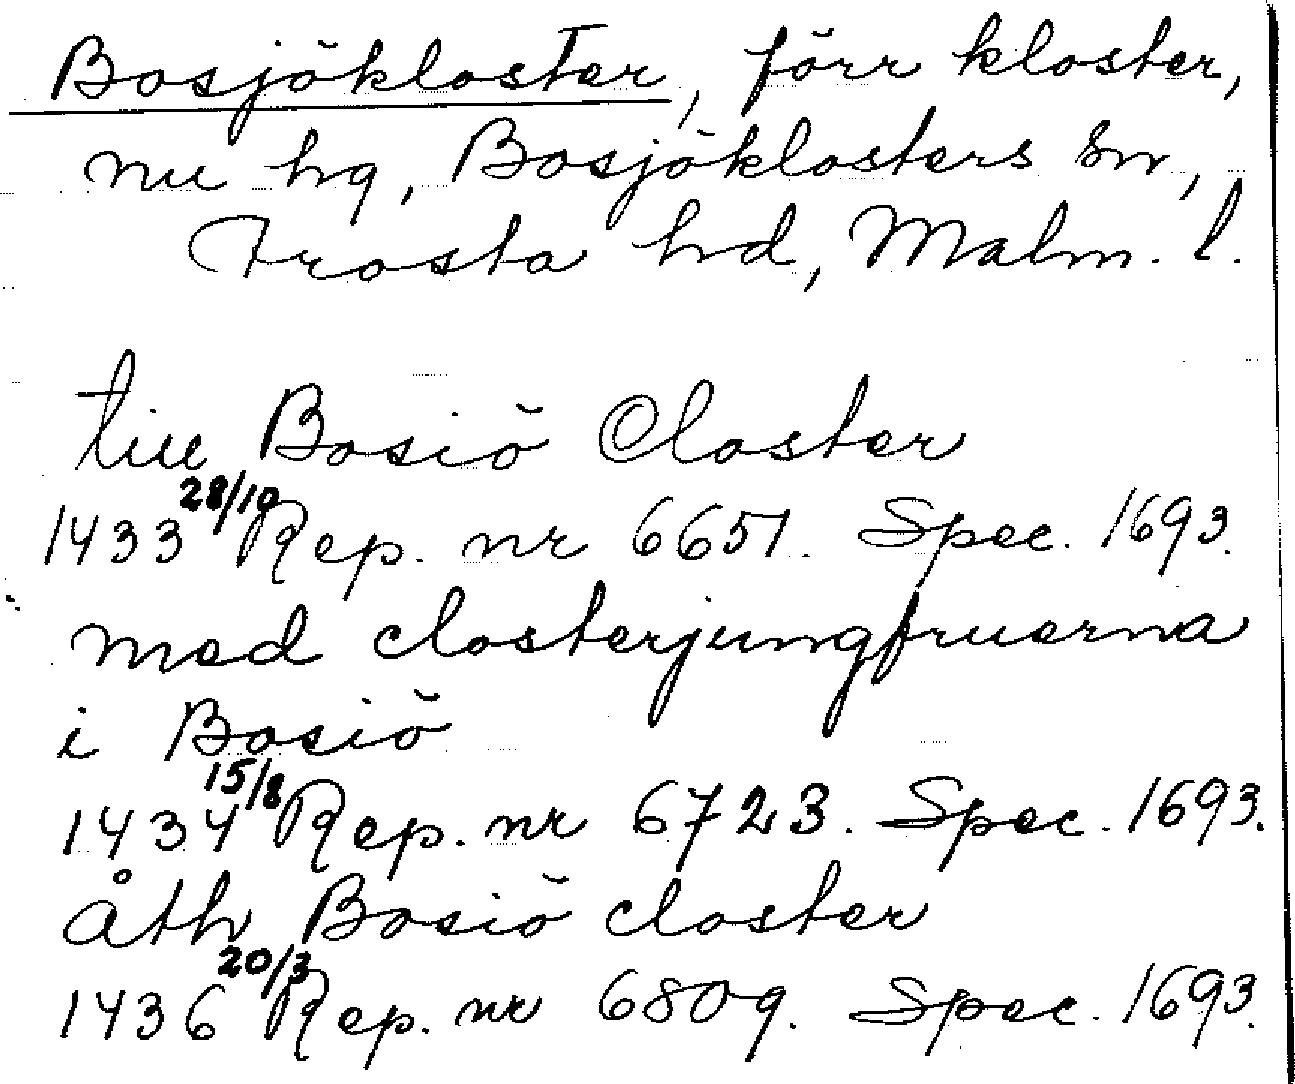 Bosjökloster, förr kloster,
nu hg, Bosjöklosters sn,
Frosta hd, Malm. l.
till Bosiö Closter
1433 28/10 Rep. nr 6651. Spec. 1693.
med closterjungfruerna
i Bosiö
1434 15/8 Rep. nr 6723. Spec. 1693.
åth Bosiö closter
1436 20/3 Rep. nr 6809. Spec. 1693.